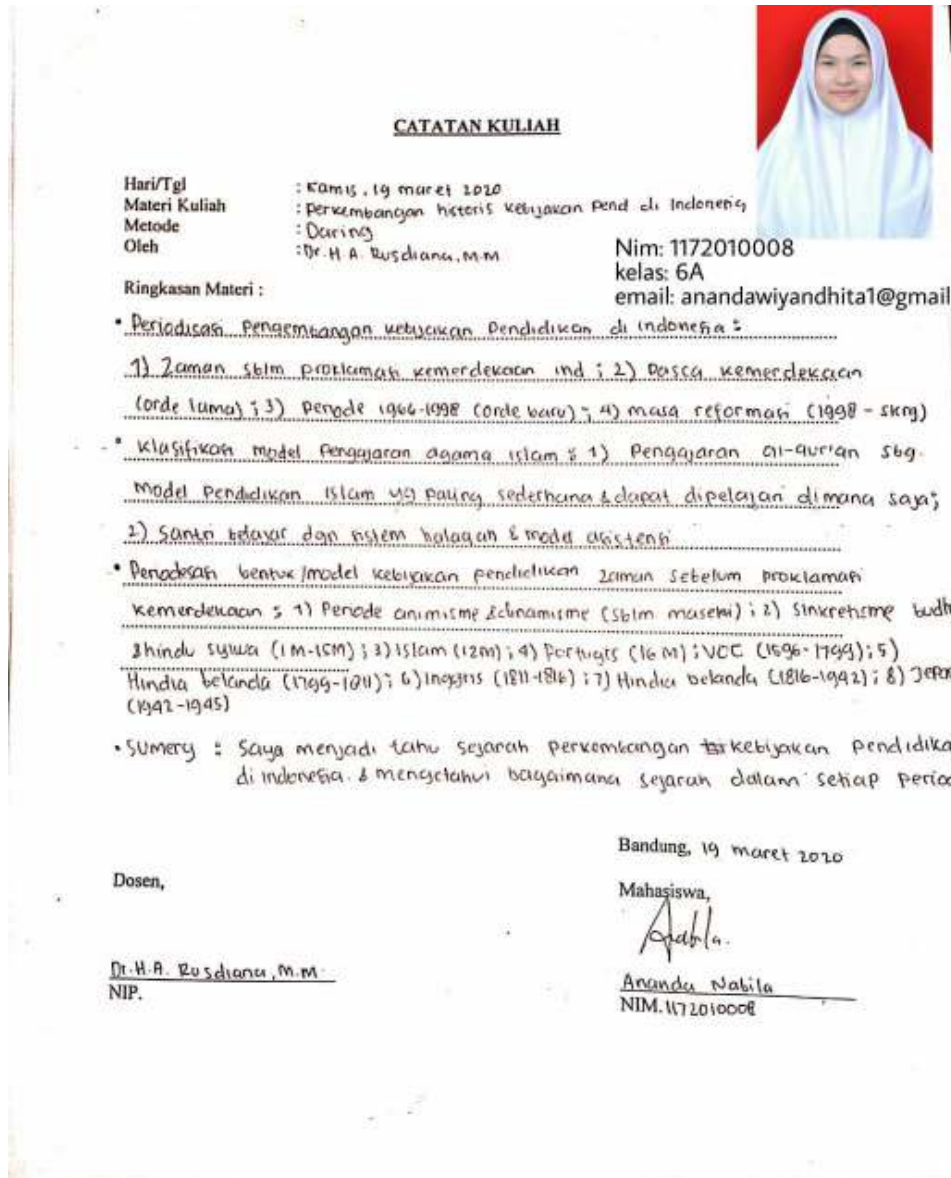 CATATAN KULIAH
Hari/Tgl : Kamis, 19 maret 2020
Materi Kuliah : Perkembangan historis kebijakan Pend di Indonesia
Metode : Daring
Oleh : Dr. H. A. Rusdiana, M.M
Nim: 1172010008
kelas: 6A
email: anandawiyandhita1@gmail
Ringkasan Materi :
• Periodisasi Pengembangan kebijakan Pendidikan di indonesia :
1) Zaman sblm proklamasi kemerdekaan ind ; 2) Pasca kemerdekaan
(orde lama) ; 3) Periode 1966-1998 (orde baru) ; 4) masa reformasi (1998 - skrg)
• Klasifikasi model Pengajaran agama islam : 1) Pengajaran al-qur'an sbg.
model pendidikan islam yg paling sederhana & dapat dipelajari dimana saja;
2) Santri belajar dgn sistem halaqah & model asistensi
• Periodesasi bentuk/model kebijakan pendidikan zaman sebelum proklamasi
kemerdekaan : 1) Periode animisme & dinamisme (sblm masehi) ; 2) Sinkretisme budh
& hindu sywa (1M-15M) ; 3) Islam (12M) ; 4) Portugis (16 M) ; VOC (1596-1799) ; 5)
Hindia belanda (1799-1811) ; 6) Inggris (1811-1816) ; 7) Hindia belanda (1816-1942) ; 8) Jepan
(1942-1945)
• Sumery : Saya menjadi tahu sejarah perkembangan kebijakan pendidika
di indonesia & mengetahui bagaimana sejarah dalam setiap perio
Bandung, 19 maret 2020
Dosen,
Mahasiswa,
Dr. H. A. Rusdiana, M.M.
NIP.
Ananda Nabila
NIM. 1172010008